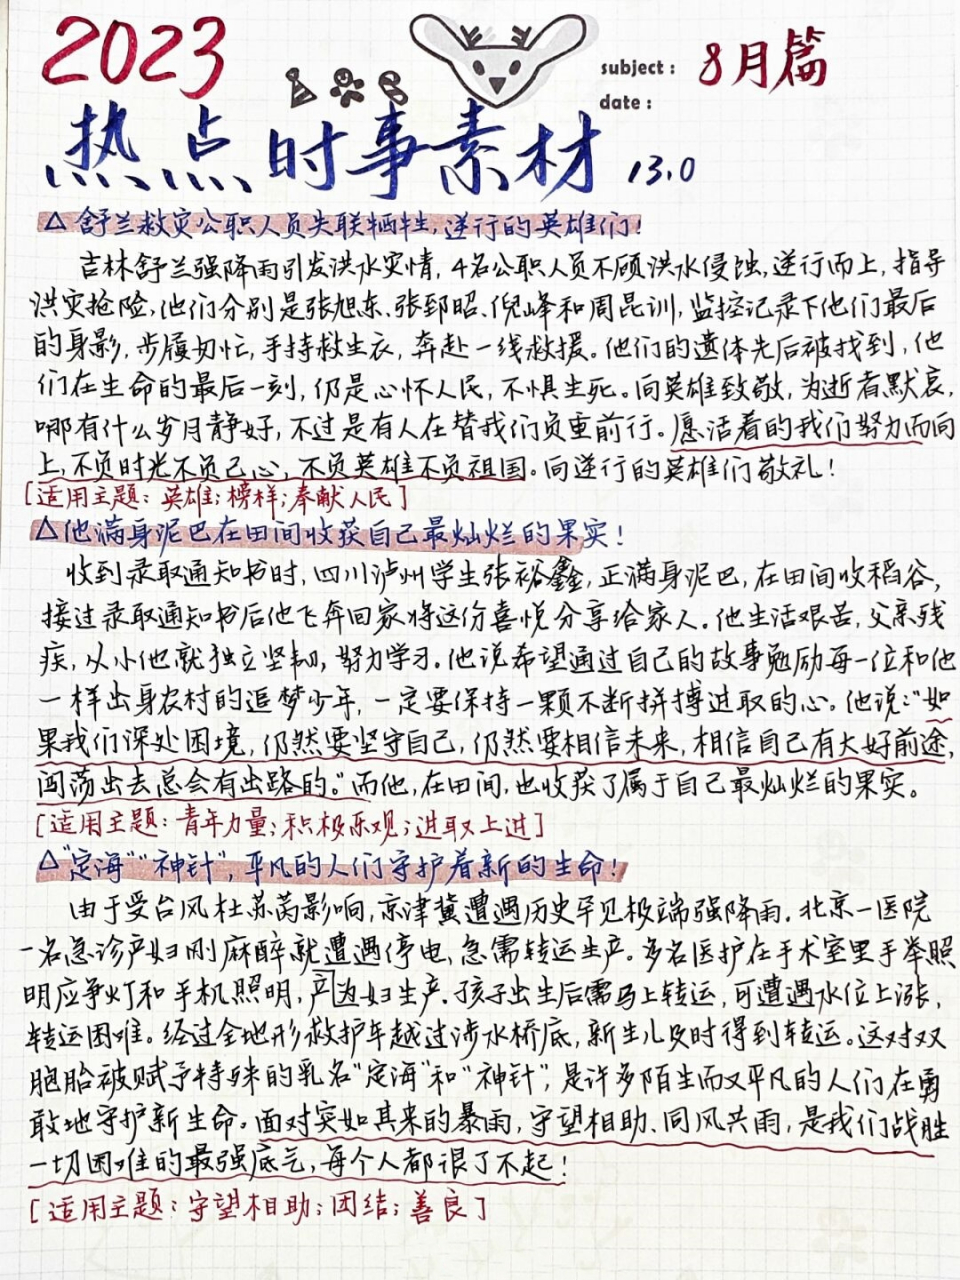 2023
subject：8月篇
date：
热点时事素材 13.0
△舒兰救灾公职人员失联牺牲，逆行的英雄们！
吉林舒兰强降雨引发洪水灾情，4名公职人员不顾洪水侵蚀，逆行而上，指导
洪灾抢险，他们分别是张旭东、张郅昭、倪峰和周昆训，监控记录下他们最后
的身影，步履匆忙，手持救生衣，奔赴一线救援。他们的遗体先后被找到，他
们在生命的最后一刻，仍是心怀人民，不惧生死。向英雄致敬，为逝者默哀，
哪有什么岁月静好，不过是有人在替我们负重前行。愿活着的我们努力而向
上，不负时光不负己心，不负英雄不负祖国。向逆行的英雄们敬礼！
[适用主题：英雄；榜样；奉献人民]
△他满身泥巴在田间收获自己最灿烂的果实！
收到录取通知书时，四川泸州学生张裕鑫，正满身泥巴，在田间收稻谷，
接过录取通知书后他飞奔回家将这份喜悦分享给家人。他生活艰苦，父亲残
疾，从小他就独立坚韧，努力学习。他说希望通过自己的故事勉励每一位和他
一样出身农村的追梦少年，一定要保持一颗不断拼搏进取的心。他说：“如
果我们深处困境，仍然要坚守自己，仍然要相信未来，相信自己有大好前途，
闯荡出去总会有出路的。”而他，在田间，也收获了属于自己最灿烂的果实。
[适用主题：青年力量；积极乐观；进取上进]
△“定海”“神针”，平凡的人们守护着新的生命！
由于受台风杜苏芮影响，京津冀遭遇历史罕见极端强降雨。北京一医院
一名急诊产妇刚麻醉就遭遇停电，急需转运生产。多名医护在手术室里手举照
明应争灯和手机照明，为产妇生产。孩子出生后需马上转运，可遭遇水位上涨，
转运困难。经过全地形救护车越过涉水桥底，新生儿及时得到转运。这对双
胞胎被赋予特殊的乳名“定海”和“神针”，是许多陌生而又平凡的人们在勇
敢地守护新生命。面对突如其来的暴雨，守望相助、同风共雨，是我们战胜
一切困难的最强底气，每个人都很了不起！
[适用主题：守望相助；团结；善良]